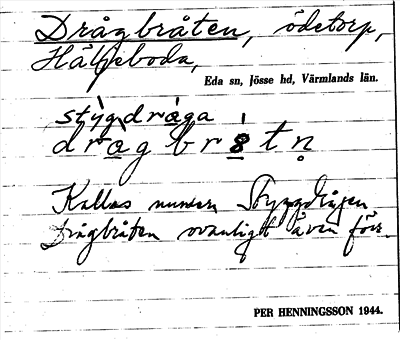 Drågbråten, ödetorp,
Häljeboda,
Eda sn, Jösse hd, Värmlands län.
stỳgdrǻga
drågbr8́tṇ
Kallas numera Styggdrågen
Drågbråten ovanligt även förr.
PER HENNINGSSON 1944.